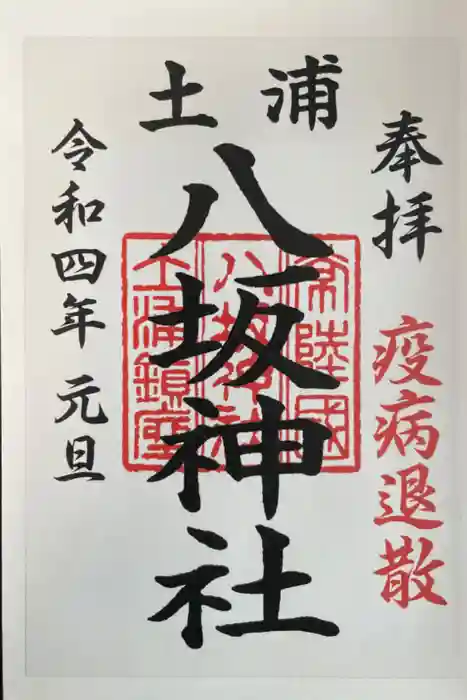 奉拝
疫病退散
土浦
八坂神社
常陸國
八坂神社
土浦鎮座
令和四年 元旦